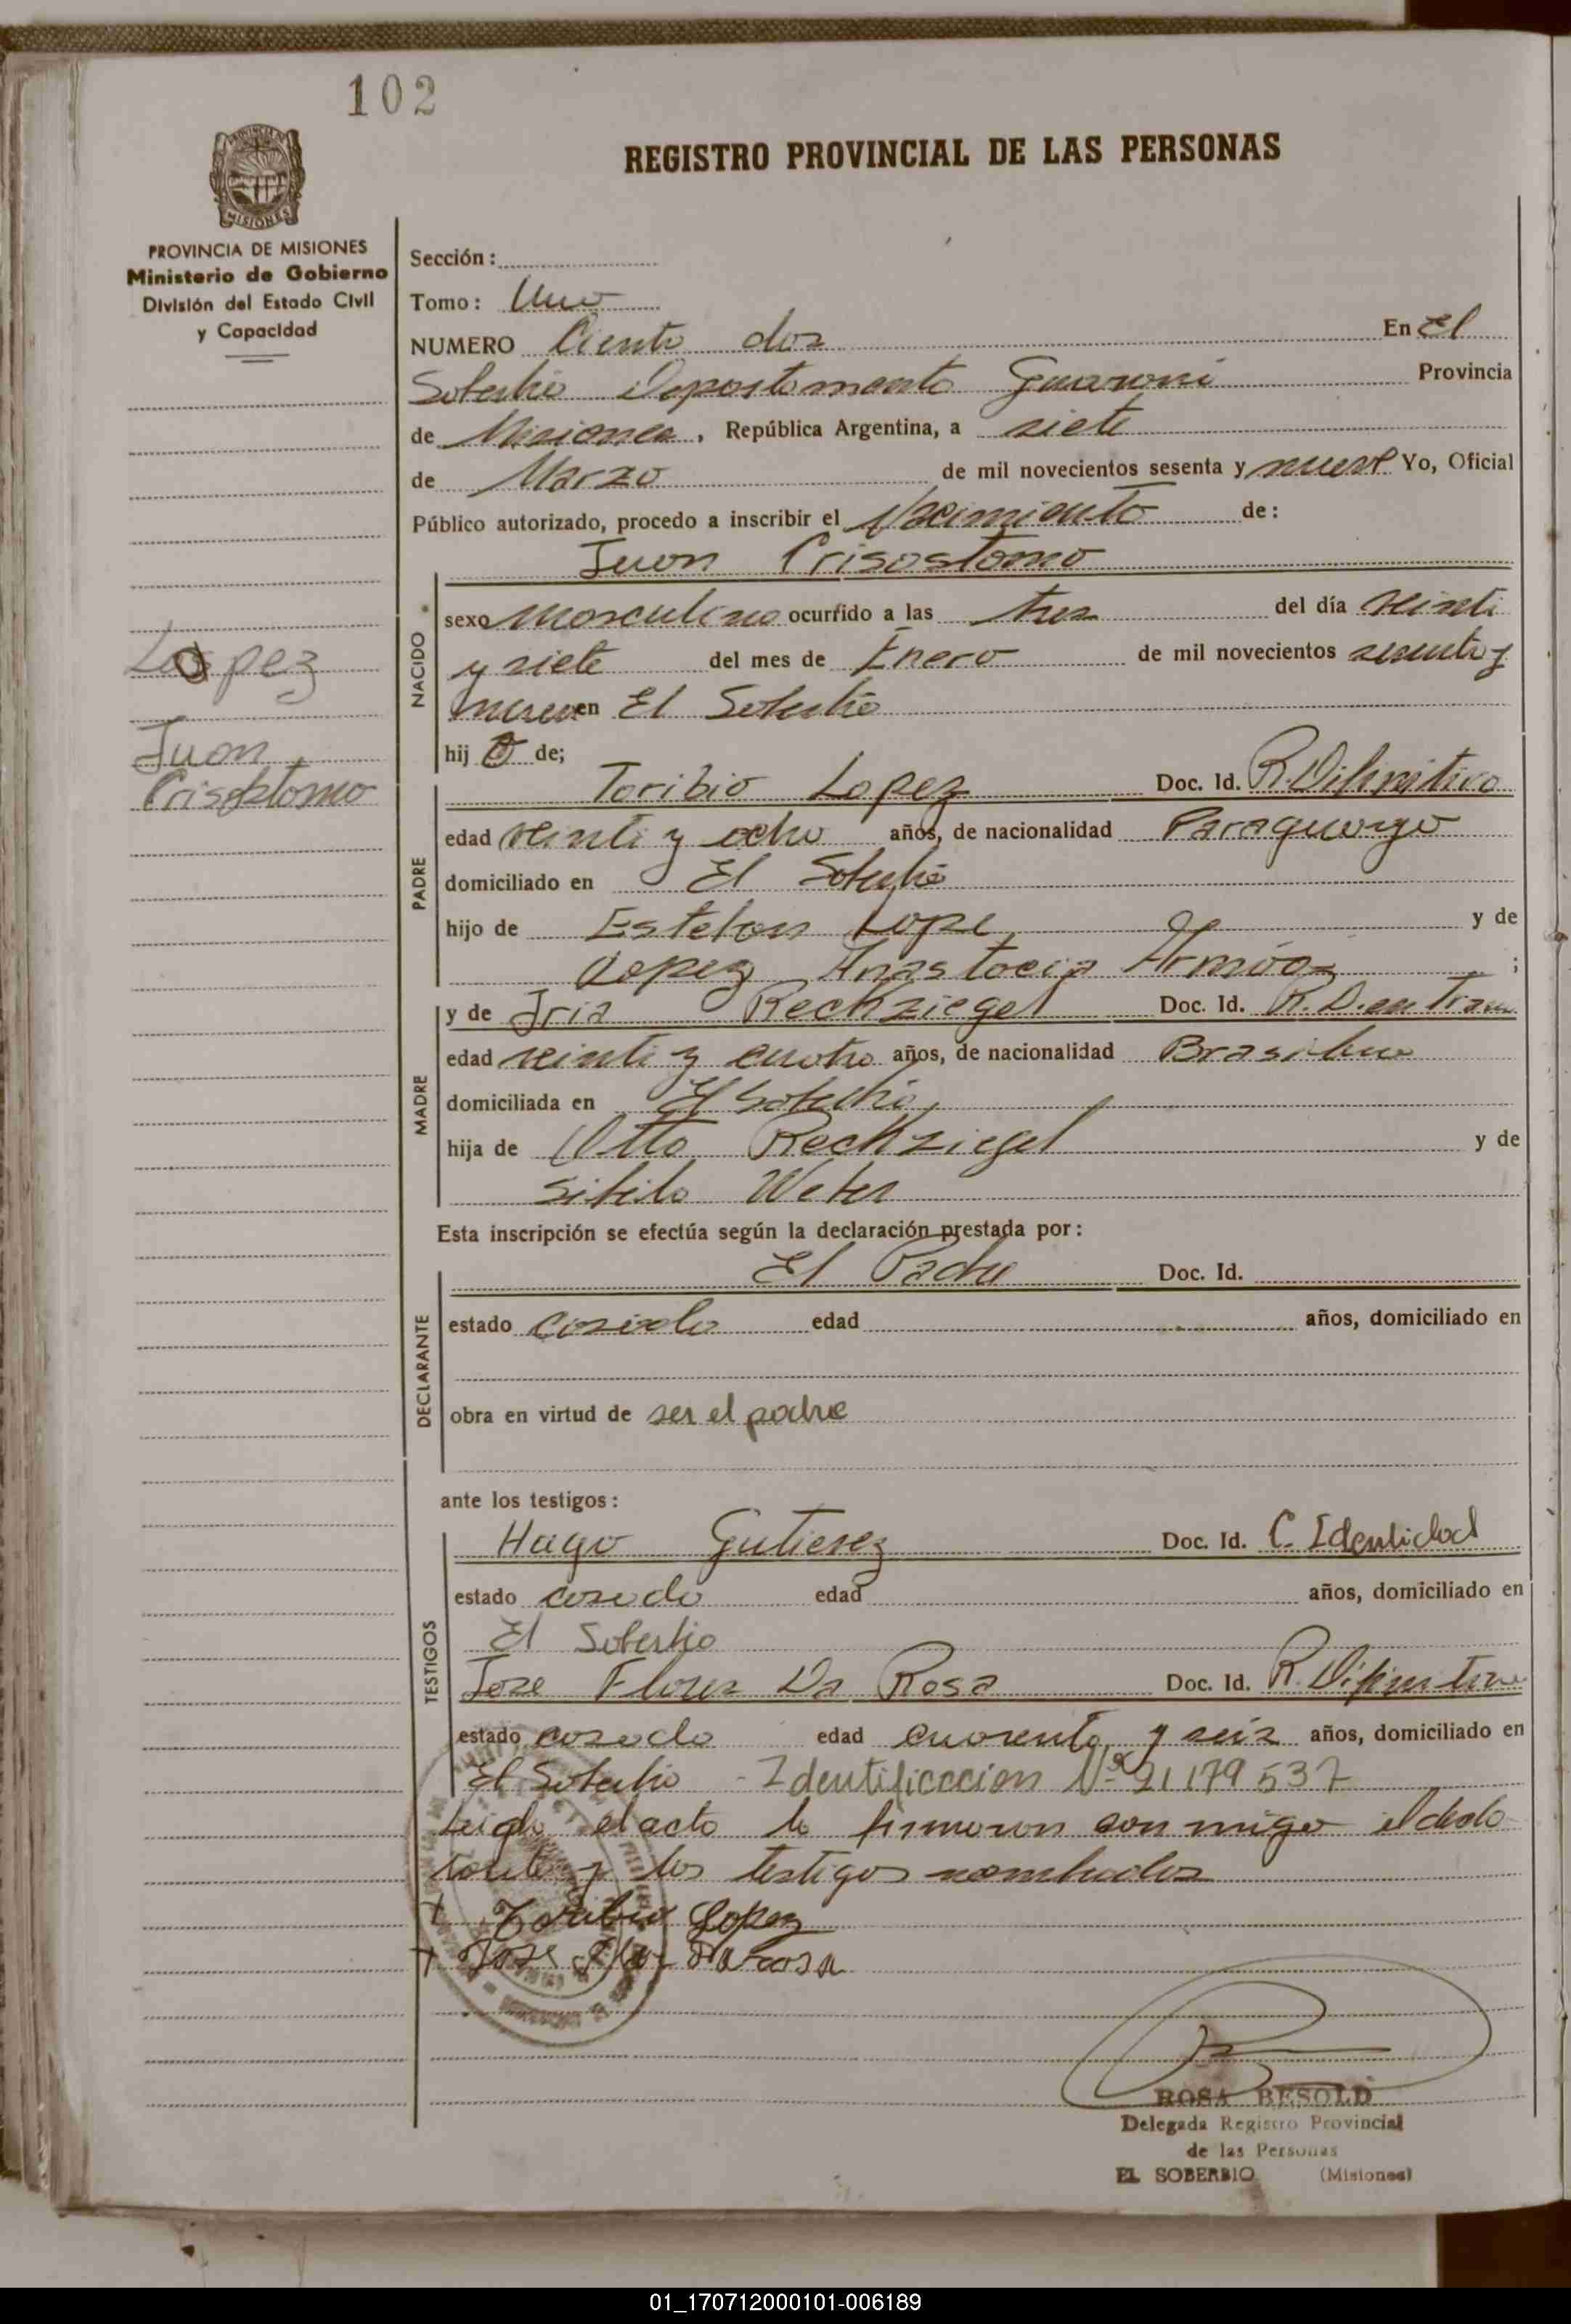 102
REGISTRO PROVINCIAL DE LAS PERSONAS
PROVINCIA DE MISIONES
MISIONES
PROVINCIA DE MISIONES
Ministerio de Gobierno
División del Estado Civil
y Capacidad
Lopez
Juan
Crisostomo
Sección:
Tomo: Uno
NUMERO Ciento dos En El
Soberbio Departamento Guarani Provincia
de Misiones, República Argentina, a siete
de Marzo de mil novecientos sesenta y nueve Yo, Oficial
Público autorizado, procedo a inscribir el Nacimiento de:
Juan Crisostomo
NACIDO
sexo masculino ocurrido a las tres del día veinti
y siete del mes de Enero de mil novecientos sesenta y
nueve en El Soberbio
hij o de;
PADRE
Toribio Lopez Doc. Id. R. Difinitivo
edad veinti y ocho años, de nacionalidad Paraguayo
domiciliado en El Soberbio
hijo de Esteban Lope y de
Lopez Anastacia Armoa ;
MADRE
y de Iria Rechziegel Doc. Id. R. D. en Tram
edad veinti y cuatro años, de nacionalidad Brasileno
domiciliada en El Soberbio
hija de Otto Rechziegel y de
Sibila Weber
Esta inscripción se efectúa según la declaración prestada por:
DECLARANTE
El Padre Doc. Id.
estado casado edad años, domiciliado en
obra en virtud de ser el padre
ante los testigos:
TESTIGOS
Hugo Gutierez Doc. Id. C. Identidad
estado casado edad años, domiciliado en
El Soberbio
Jose Flores Da Rosa Doc. Id. R. Difinitivo
estado casado edad cuarenta y seis años, domiciliado en
El Soberbio - Identificacion Nº 21179537
Leida el acta la firmaron con migo el decla
rante y los testigos nombrados
+ Toribio Lopez
+ Jose Flor Darosa
ROSA BESOLD
Delegada Registro Provincial
de las Personas
EL SOBERBIO (Misiones)
01_170712000101-006189